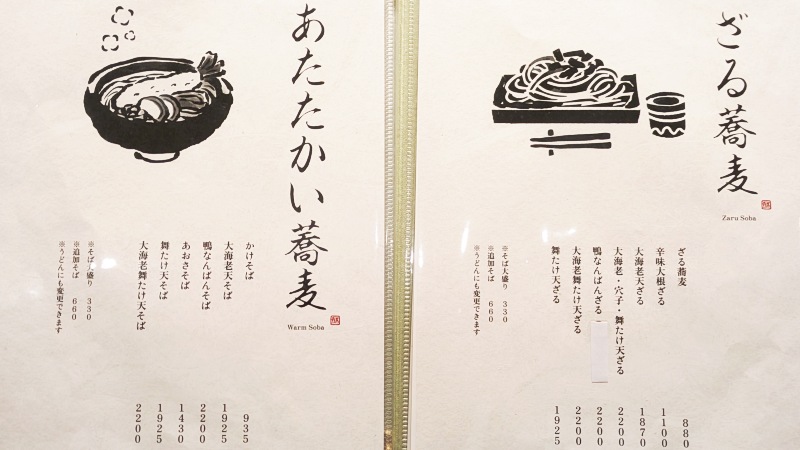 ざる蕎麦
Zaru Soba
ざる蕎麦 880
辛味大根ざる 1100
大海老天ざる 1870
大海老・穴子・舞たけ天ざる 2200
鴨なんばんざる 2200
大海老舞たけ天ざる 2200
舞たけ天ざる 1925
※そば大盛り 330
※追加そば 660
※うどんにも変更できます
あたたかい蕎麦
Warm Soba
かけそば 935
大海老天そば 1925
鴨なんばんそば 2200
あおさそば 1430
舞たけ天そば 1925
大海老舞たけ天そば 2200
※そば大盛り 330
※追加そば 660
※うどんにも変更できます